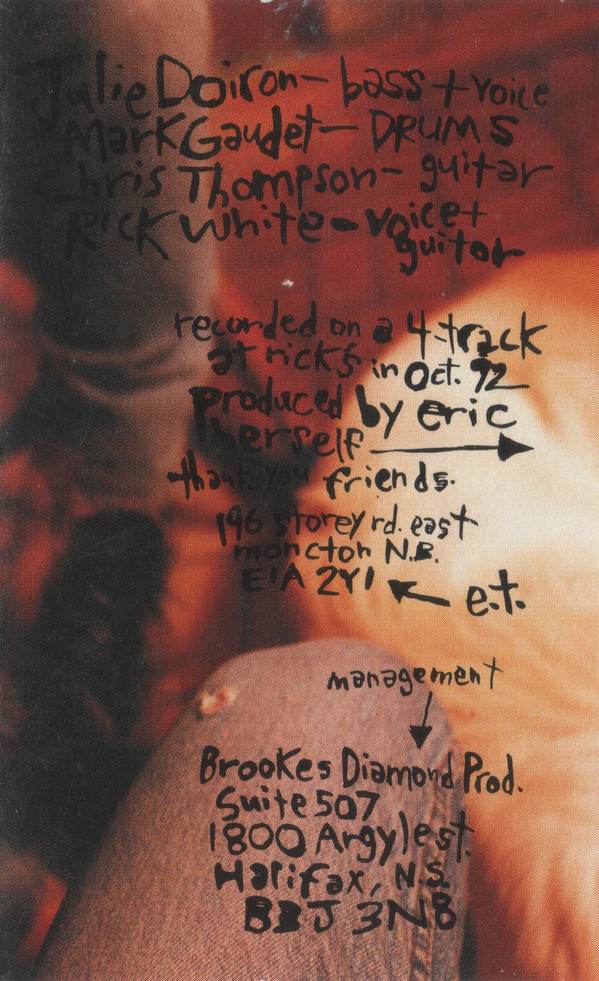 Julie Doiron - bass + voice
Mark Gaudet - DRUMS
Chris Thompson - guitar
Rick white - voice +
guitar
recorded on a 4-track
at ricks in Oct. 92
produced by eric
herself
thank you friends.
196 storey rd. east
moncton N.B.
E1A 2Y1 e.t.
management
Brookes Diamond Prod.
Suite 507
1800 Argyle st.
Halifax, N.S.
B3J 3N8